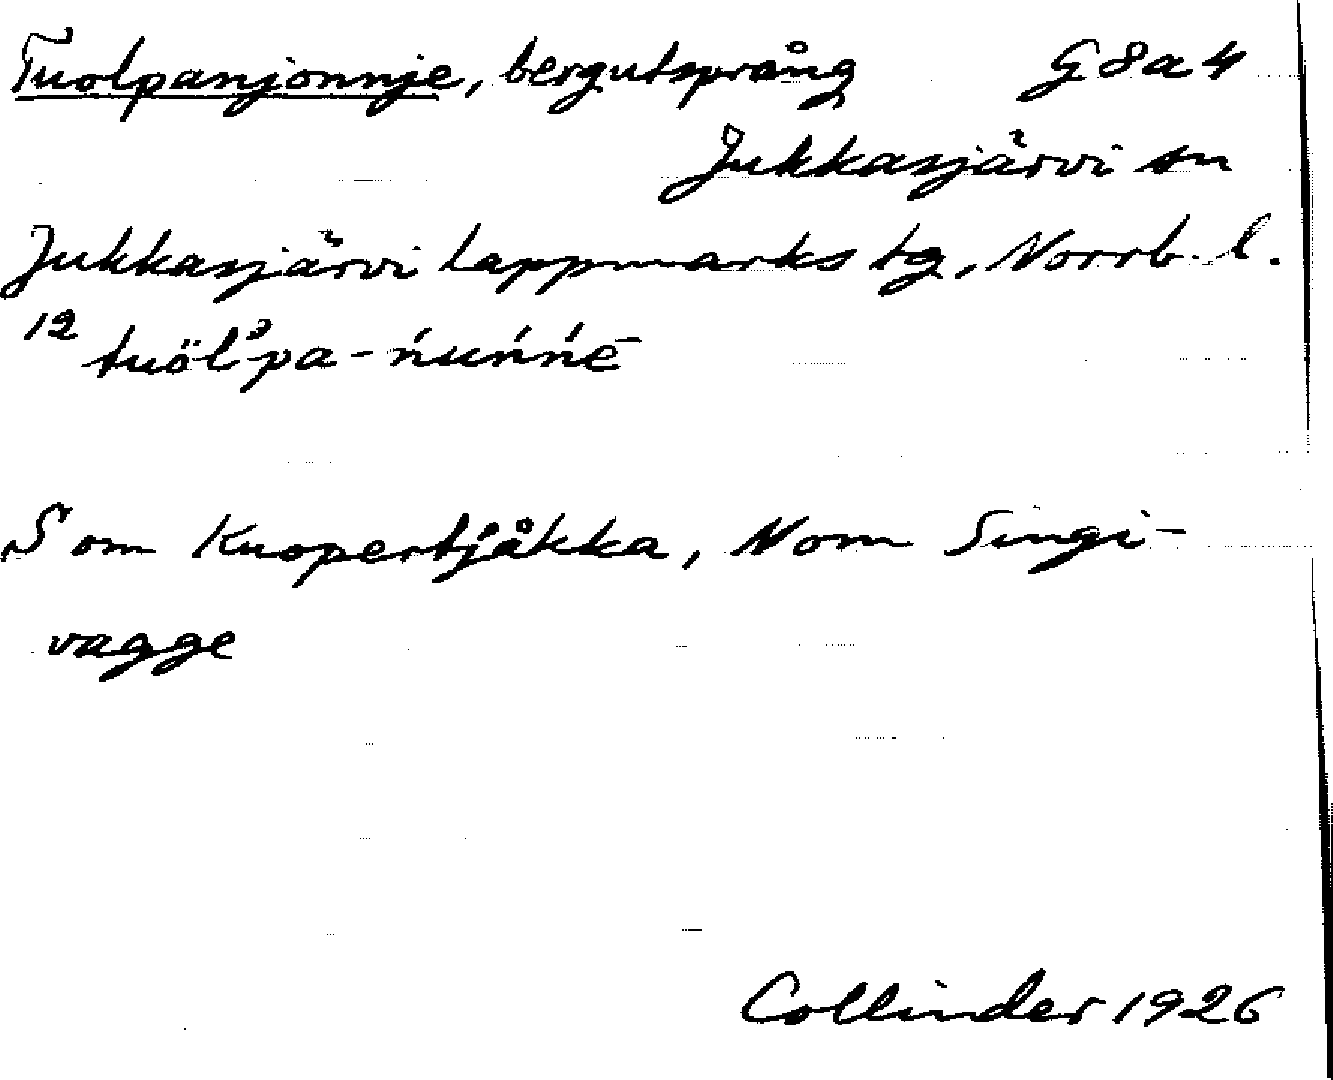 Tuolpanjonnje, bergutsprång G8a4
Jukkasjärvi sn
Jukkasjärvi lappmarks tg, Norrb. l.
12 tuöl'pa-ńuńńē
S om Kuopertjåkka, N om Singi-
vagge
Collinder 1926